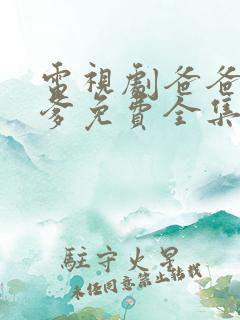 電視劇爸爸
爹免費全集
駐守火星
未經同意禁止轉載